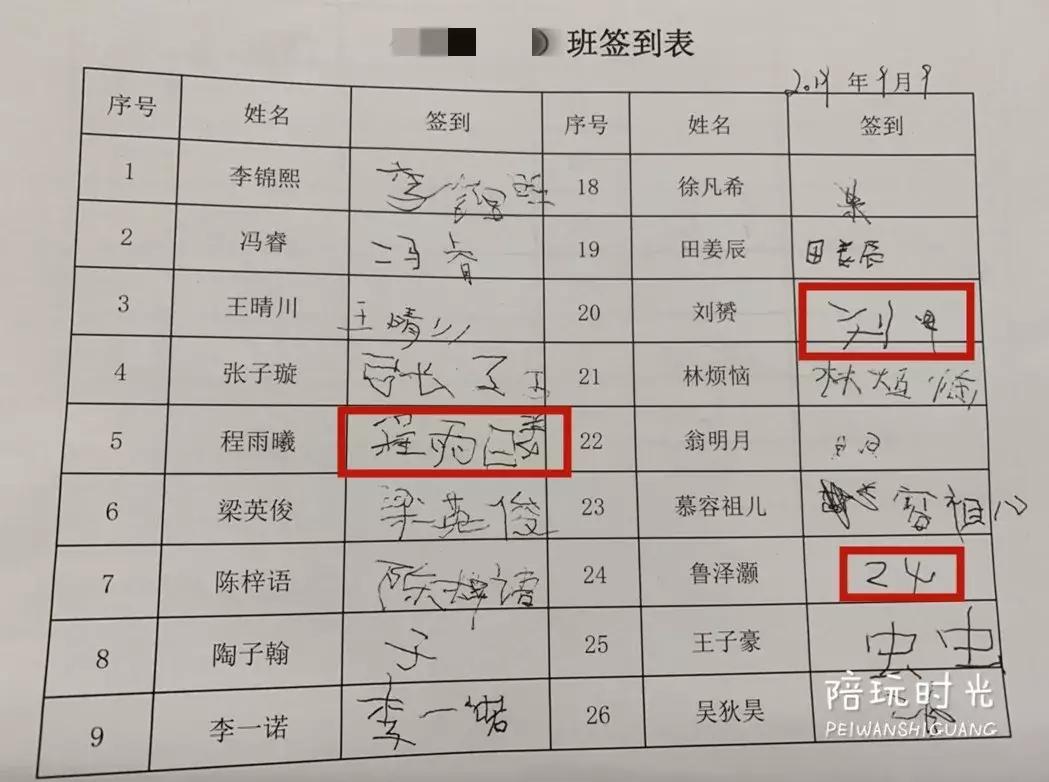 班签到表
2019年9月9
序号 姓名 签到 序号 姓名 签到
1 李锦熙 李锦熙 18 徐凡希
2 冯睿 冯 19 田姜辰 田姜辰
3 王晴川 王晴川 20 刘赟 刘
4 张子璇 21 林烦恼 林烦恼
5 程雨曦 程雨曦 22 翁明月 明月
6 梁英俊 梁英俊 23 慕容祖儿 容祖儿
7 陈梓语 陈梓语 24 鲁泽灏 24
8 陶子翰 子 25 王子豪 虫虫
9 李一诺 李一诺 26 吴狄昊
陪玩时光
PEIWANSHIGUANG